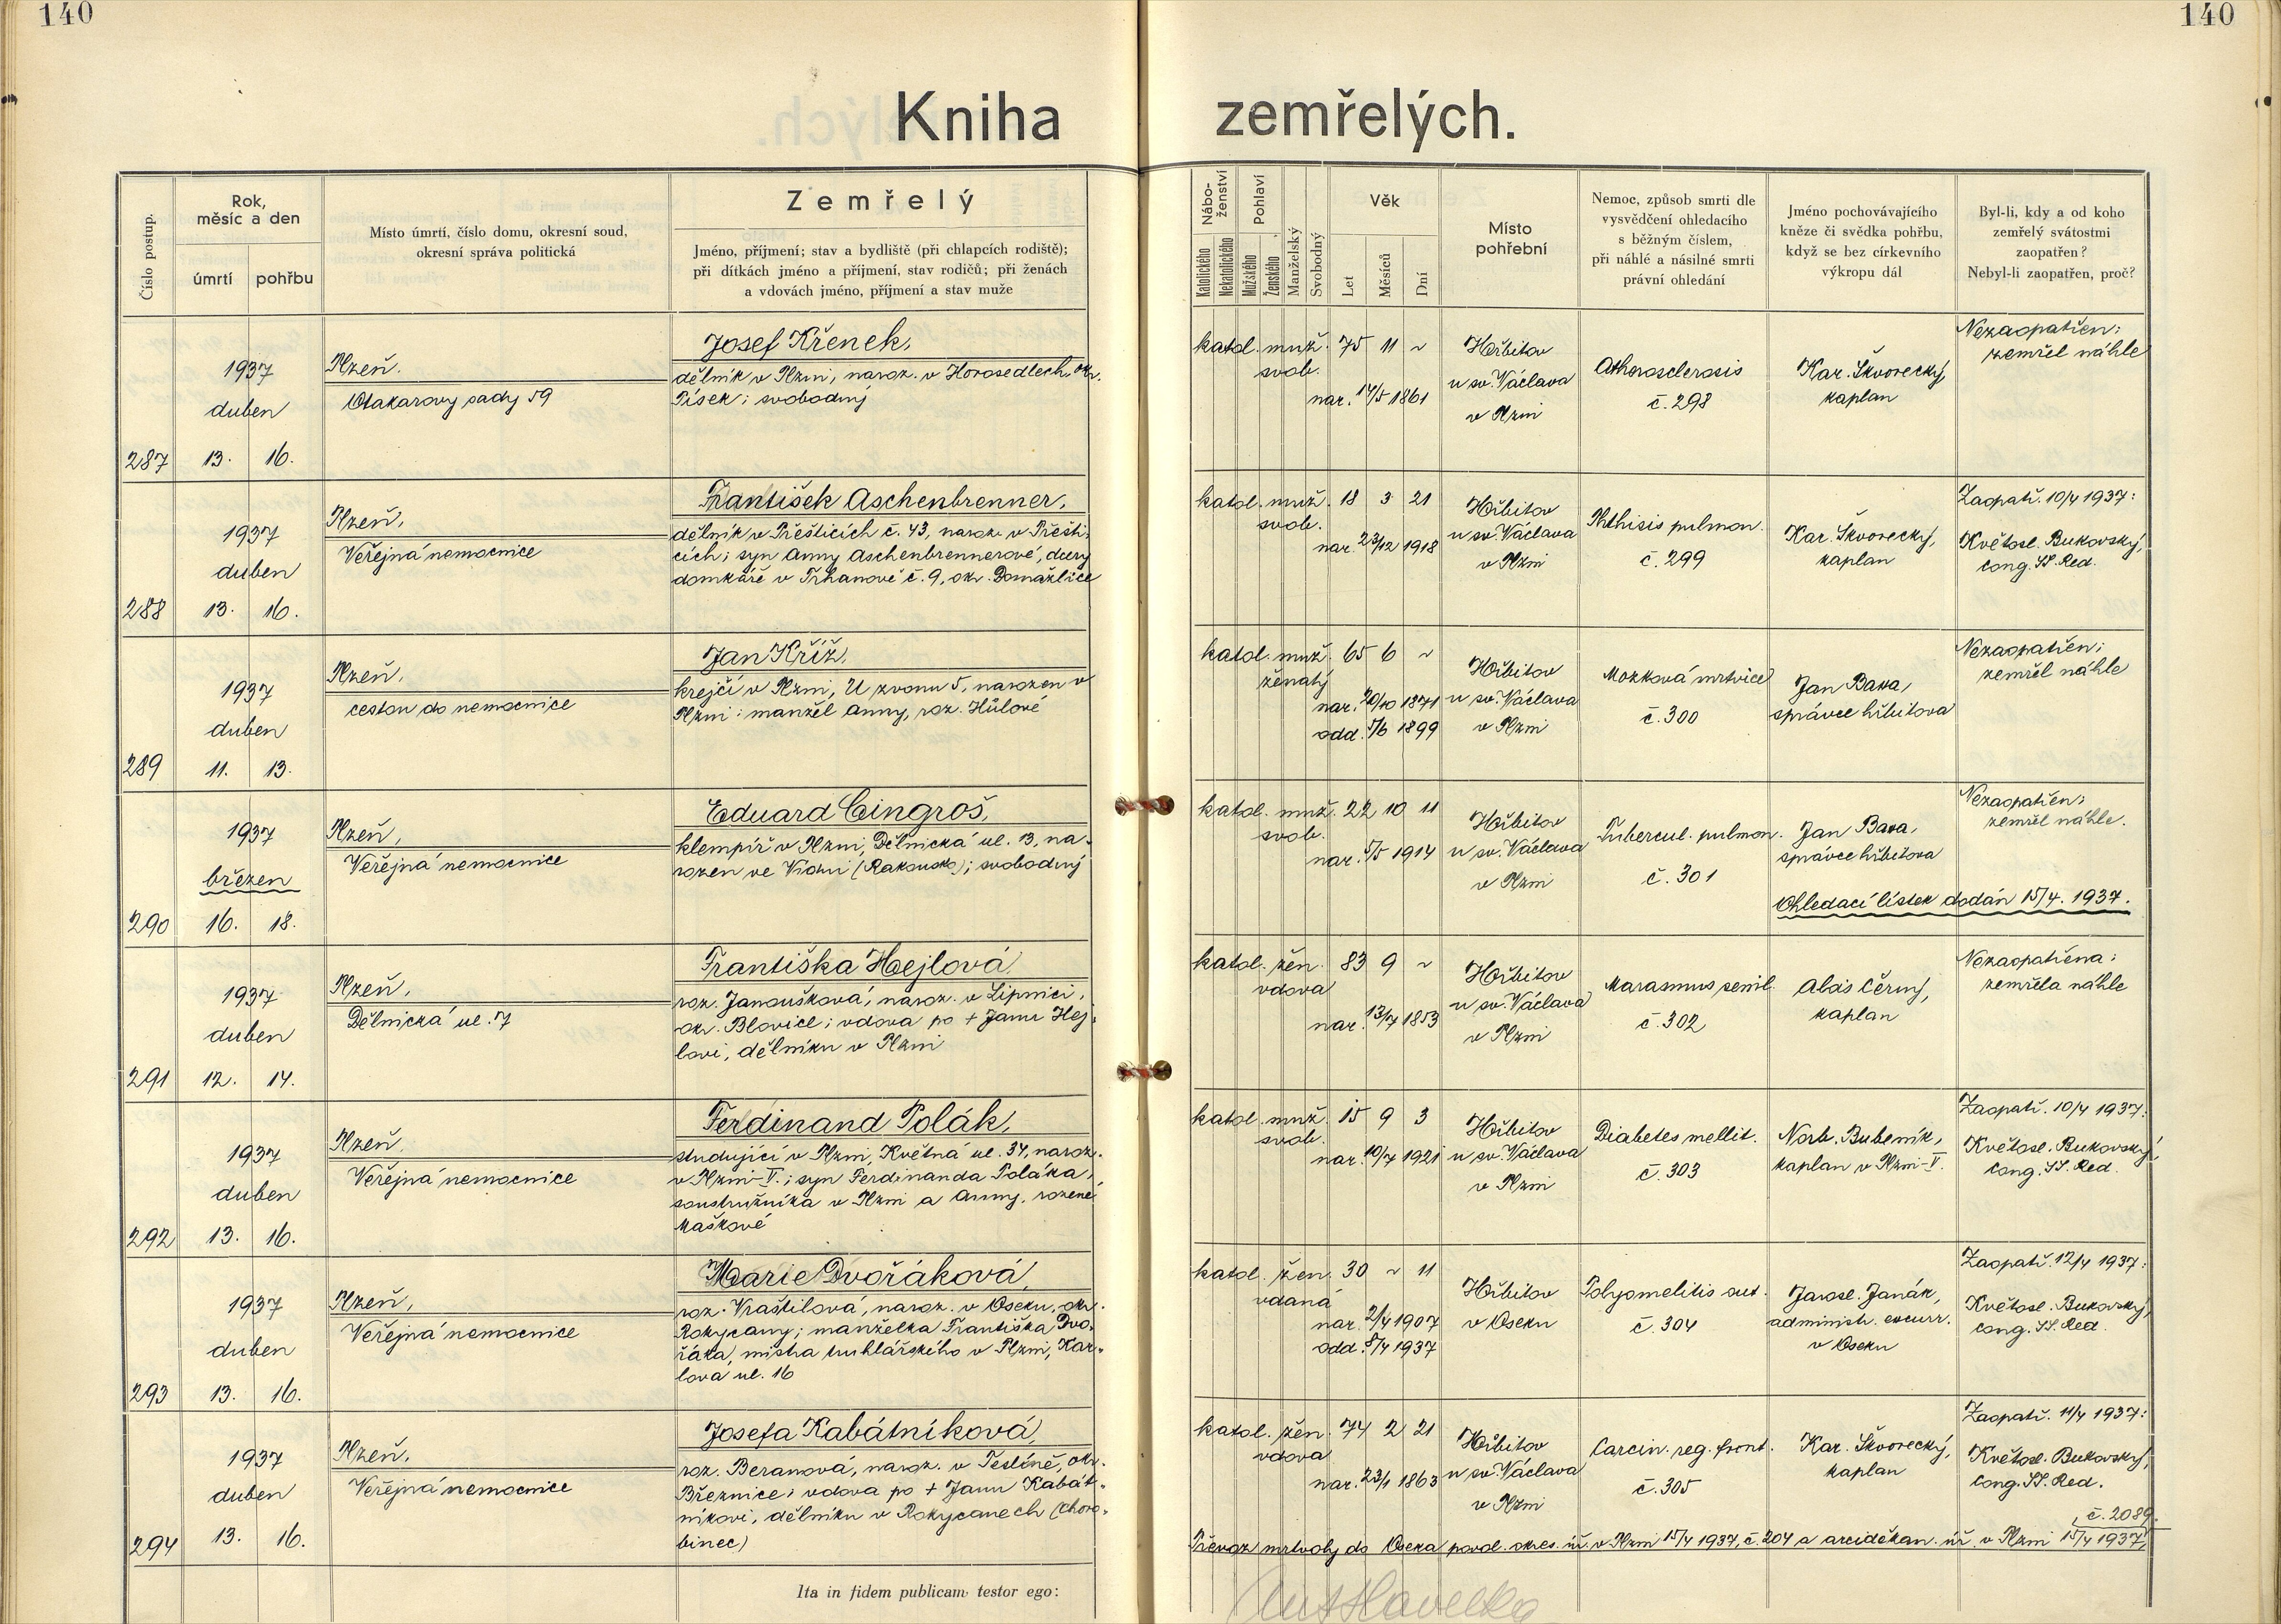 140
140
Kniha zemřelých.
Číslo postup.
Rok,
měsíc a den
úmrtí
pohřbu
Místo úmrtí, číslo domu, okresní soud,
okresní správa politická
Zemřelý
Jméno, příjmení; stav a bydliště (při chlapcích rodiště);
při dítkách jméno a příjmení, stav rodičů; při ženách
a vdovách jméno, příjmení a stav muže
Nábo-
ženství
Katolického
Nekatolického
Pohlaví
Mužského
Ženského
Manželský
Svobodný
Věk
Let
Měsíců
Dní
Místo
pohřební
Nemoc, způsob smrti dle
vysvědčení ohledacího
s běžným číslem,
při náhlé a násilné smrti
právní ohledání
Jméno pochovávajícího
kněze či svědka pohřbu,
když se bez církevního
výkropu dál
Byl-li, kdy a od koho
zemřelý svátostmi
zaopatřen?
Nebyl-li zaopatřen, proč?
287
1937
duben
13. 16.
Plzeň.
Otakarovy sady 59
Josef Křenek,
dělník v Plzni, naroz. v Horosedlech, okr.
Písek; svobodný
katol. muž. 75 11 ~
svob.
nar. 14/5 1861
Hřbitov
u sv. Václava
v Plzni
Atherosclerosis
č. 298
Kar. Škvorecký,
kaplan
Nezaopatřen;
zemřel náhle
288
1937
duben
13. 16.
Plzeň,
Veřejná nemocnice
František Aschenbrenner,
dělník v Přešticích č. 43, naroz. v Přešti-
cích; syn Anny Aschenbrennerové, dcery
domkáře v Trhanově č. 9, okr. Domažlice
katol. muž. 18 3 21
svob.
nar. 23/12 1918
Hřbitov
u sv. Václava
v Plzni
Phthisis pulmon.
č. 299
Kar. Škvorecký,
kaplan
Zaopatř. 10/4 1937:
Květosl. Bukovský,
Cong. SS. Red.
289
1937
duben
11. 13.
Plzeň,
cestou do nemocnice
Jan Kříž,
krejčí v Plzni, U zvonu 5, narozen v
Plzni; manžel Anny, roz. Hůlové
katol. muž. 65 6 ~
ženatý
nar. 20/10 1871
odd. 5/6 1899
Hřbitov
u sv. Václava
v Plzni
Mozková mrtvice
č. 300
Jan
správce hřbitova
Nezaopatřen;
zemřel náhle
290
1937
březen
16. 18.
Plzeň,
Veřejná nemocnice
Eduard Cingroš,
klempíř v Plzni, Dělnická ul. 13, na-
rozen ve Vídni (Rakousko); svobodný
katol. muž. 22 10 11
svob.
nar. 5/5 1914
Hřbitov
u sv. Václava
v Plzni
Tubercul. pulmon.
č. 301
Jan
správce hřbitova
Nezaopatřen;
zemřel náhle.
Ohledací lístek dodán 15/4. 1937.
291
1937
duben
12. 14.
Plzeň,
Dělnická ul. 7
Františka Hejlová,
roz. Janoušková, naroz. v Lipnici,
okr. Blovice; vdova po + Janu Hej-
lovi, dělníku v Plzni
katol. žen. 83 9 ~
vdova
nar. 13/7 1853
Hřbitov
u sv. Václava
v Plzni
Marasmus senil.
č. 302
Alois Černý,
kaplan
Nezaopatřena;
zemřela náhle
292
1937
duben
13. 16.
Plzeň,
Veřejná nemocnice
Ferdinand Polák,
studující v Plzni, Květná ul. 34, naroz.
v Plzni-V.; syn Ferdinanda Poláka,
soustružníka v Plzni a Anny, rozené
Maškové
katol. muž. 15 9 3
svob.
nar. 10/7 1921
Hřbitov
u sv. Václava
v Plzni
Diabetes mellit.
č. 303
Norb. Bubeník,
kaplan v Plzni-V.
Zaopatř. 10/4 1937:
Květosl. Bukovský,
Cong. SS. Red.
293
1937
duben
13. 16.
Plzeň,
Veřejná nemocnice
Marie Dvořáková,
roz. Vraštilová, naroz. v Oseku, okr.
Rokycany; manželka Františka Dvo-
řáka, mistra truhlářského v Plzni, Kar-
lova ul. 16
katol. žen. 30 ~ 11
vdaná
nar. 2/4 1907
odd. 8/4 1937
Hřbitov
v Oseku
Polyomelitis aut.
č. 304
Jarosl. Janák,
administr. excurr.
v Oseku
Zaopatř. 12/4 1937:
Květosl. Bukovský,
Cong. SS. Red.
294
1937
duben
13. 16.
Plzeň,
Veřejná nemocnice
Josefa Kabátníková,
roz. Beranová, naroz. v Teslíně, okr.
Březnice; vdova po + Janu Kabát-
níkovi, dělníku v Rokycanech (Choro-
binec)
katol. žen. 74 2 21
vdova
nar. 23/1 1863
Hřbitov
u sv. Václava
v Plzni
Carcin. reg. front.
č. 305
Kar. Škvorecký,
kaplan
Zaopatř. 11/4 1937:
Květosl. Bukovský,
Cong. SS. Red.
, č. 2089.
Převoz mrtvoly do Oseka povol. okres. úř. v Plzni 15/4 1937, č. 204 a arciděkan. úř. v Plzni 15/4 1937,
Ita in fidem publicam testor ego: